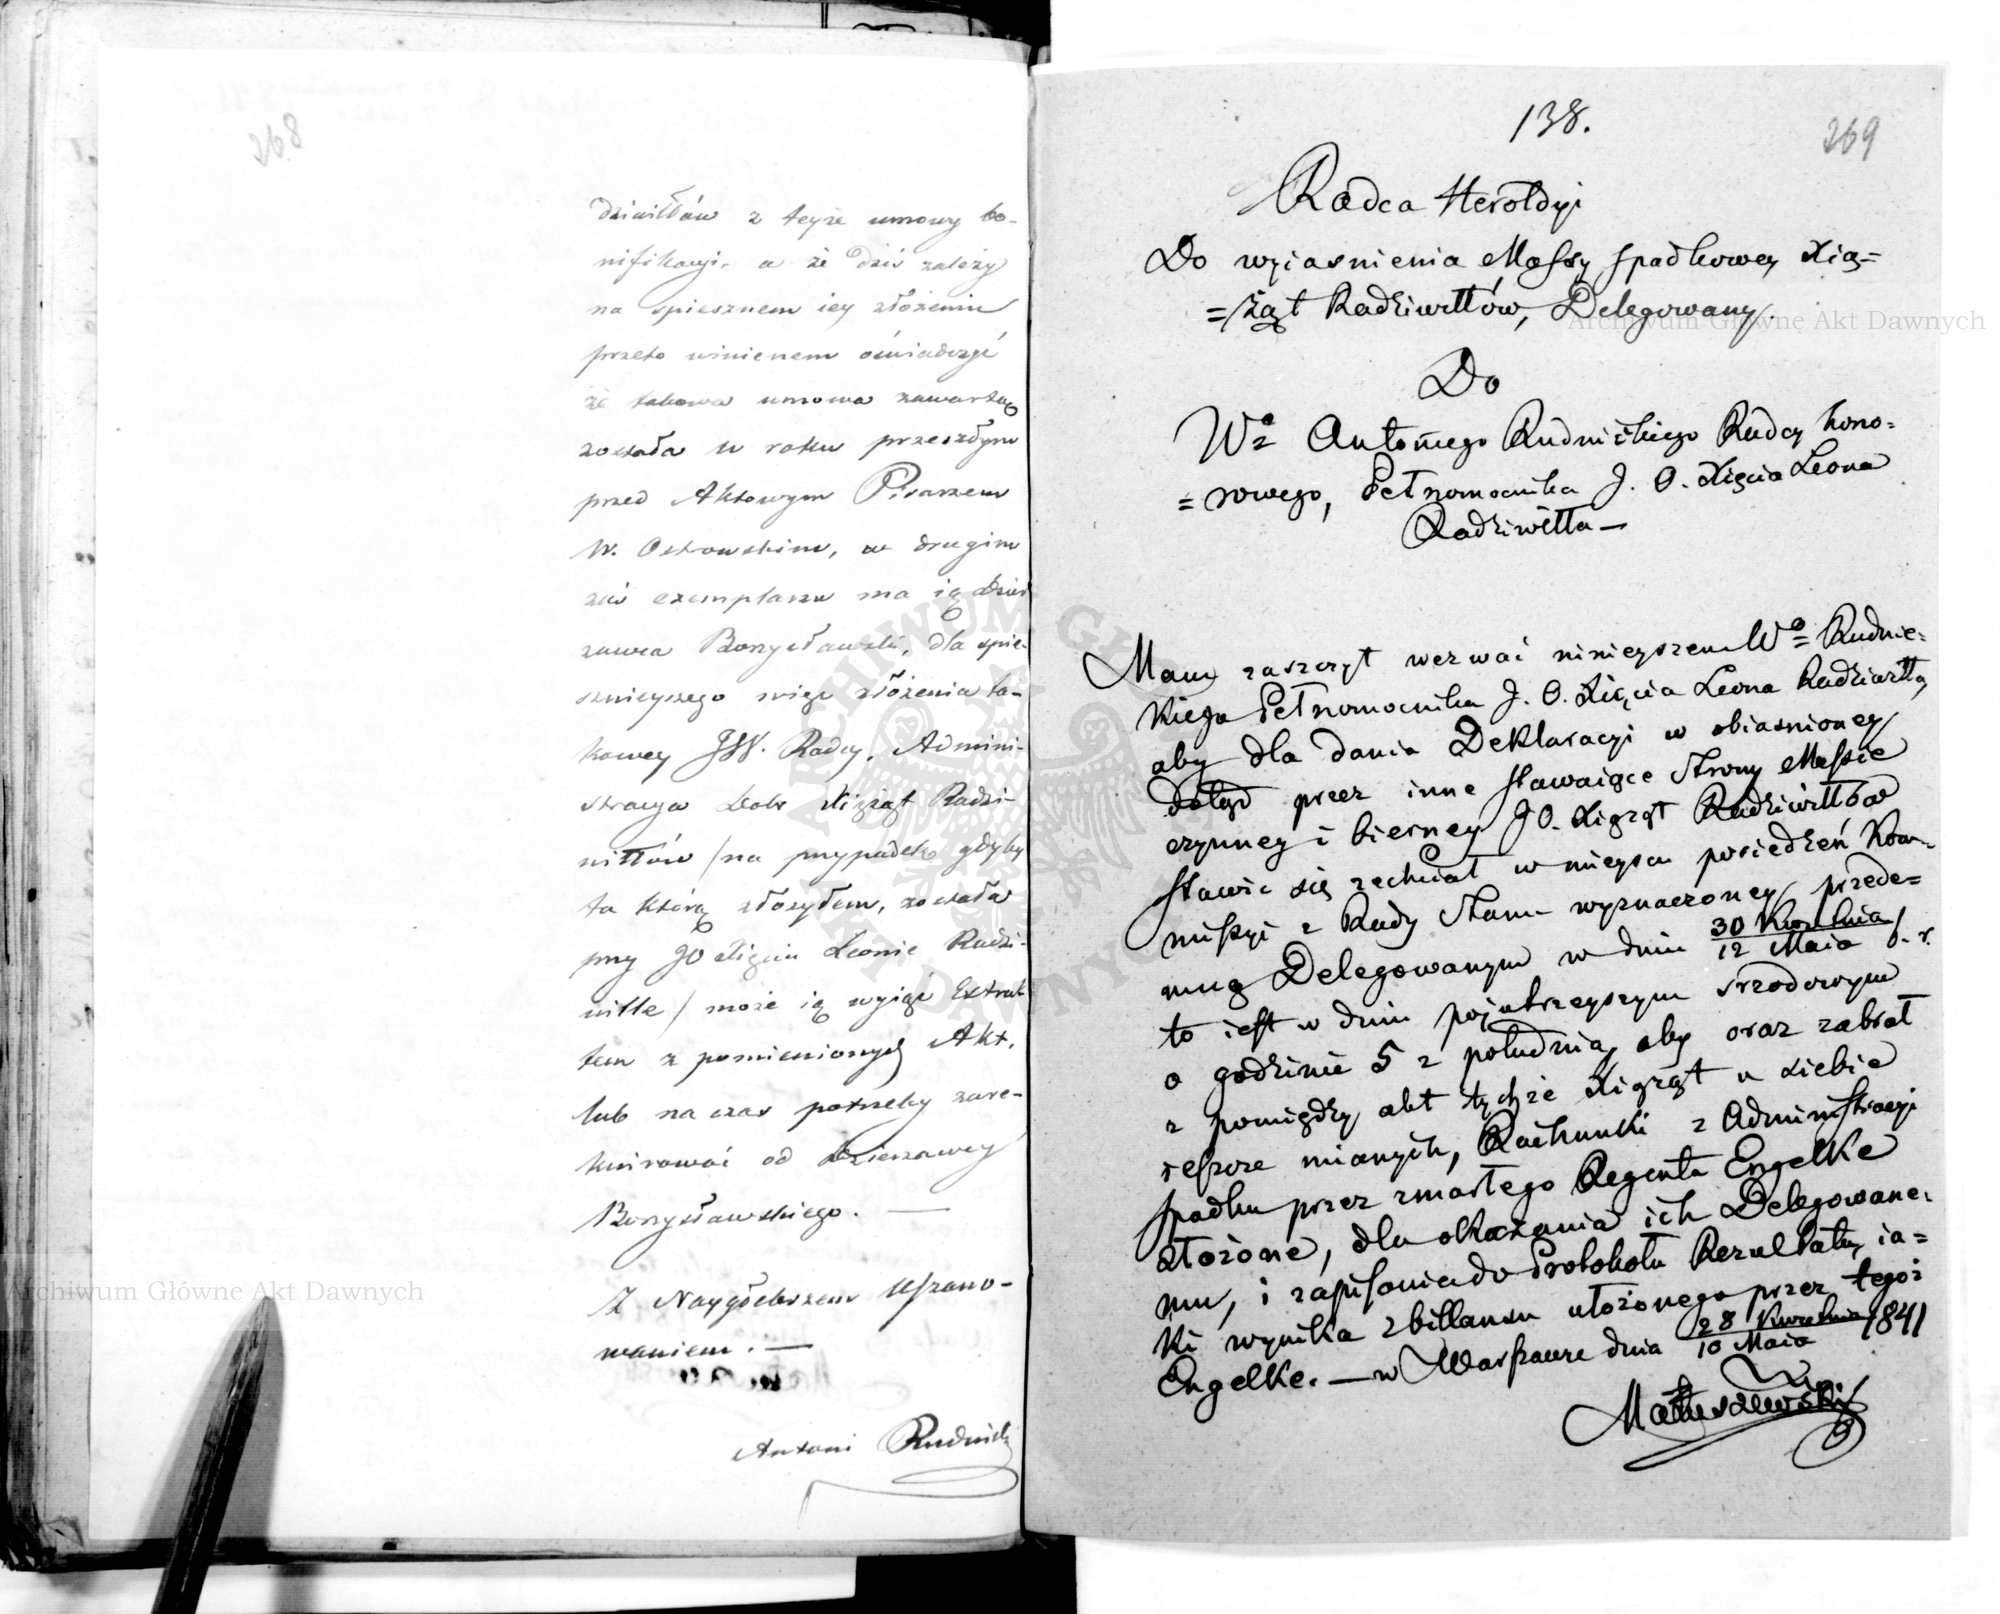 268
dziwiłłów z teyże umowy bo-
nifikacji, a że dziś zależy
na spiesznem iey złożeniu
przeto winienem oświadczyć
że takowa umowa zawartą
została w roku przeszłym
przed Aktowym Pisarzem
W. Ostrowskim, w drugim
zaś exemplarzu ma ią dzier
zawca Borysławski, dla spie-
sznieyszego więc złożenia ta-
kowey JW. Radcy, Admini-
stracya Dobr Xiążąt Radzi-
wiłłów /na przypadek gdyby
ta którą złożyłem, została
przy JO Xięciu Leonie Radzi-
wille/ może ią wyiąć Extrak
tem z pomienionych Akt,
lub na czas potrzeby zare-
kwirować od Dzierzawcy
Borysławskiego. —
Z Naygłębszem Uszano-
waniem. —
Antoni Rudnicki
138.
269
Radca Heroldyi
Do wyiasnienia Massy spadkowey Xią=
=żąt Radziwiłłów, Delegowany.
Do
Wo Antoniego Rudnickiego Radcy hono=
=rowego, Pełnomocnika J. O. Xięcia Leona
Radziwiłła —
Mam zaszczyt wezwać ninieyszem Wo Rudnic=
kiego Pełnomocnika J. O. Xięcia Leona Radziwiłła,
aby dla dania Deklaracyi w obiasnioney
dotąd przez inne stawaiące Strony Massie
czynney i bierney JO. Xiążąt Radziwiłłów
stawić się zechciał w mieyscu posiedzeń Kom=
missyi z Rady Stanu wyznaczoney, przede=
mną Delegowanym w dniu 30 Kwietnia / 12 Maia b. r.
to iest w dniu pojutrzeyszym srzodowym
o godzinie 5 z południa, aby oraz zabrał
z pomiędzy akt tychże Xiążąt u siebie
resp[...] mianych, Rachunki z Administracyi
spadku przez zmarłego Regenta Engelke
złożone, dla okazania ich Delegowane=
mu, i zapisania do Protokołu Rezultatu, ia=
ki wynika z billansu ułożonego przez tegoż
Engelke. — w Warszawie dnia 28 Kwietnia / 10 Maia 1841
Matuszewski
Archiwum Główne Akt Dawnych
Archiwum Główne Akt Dawnych
ARCHIWUM GŁÓWNE AKT DAWNYCH